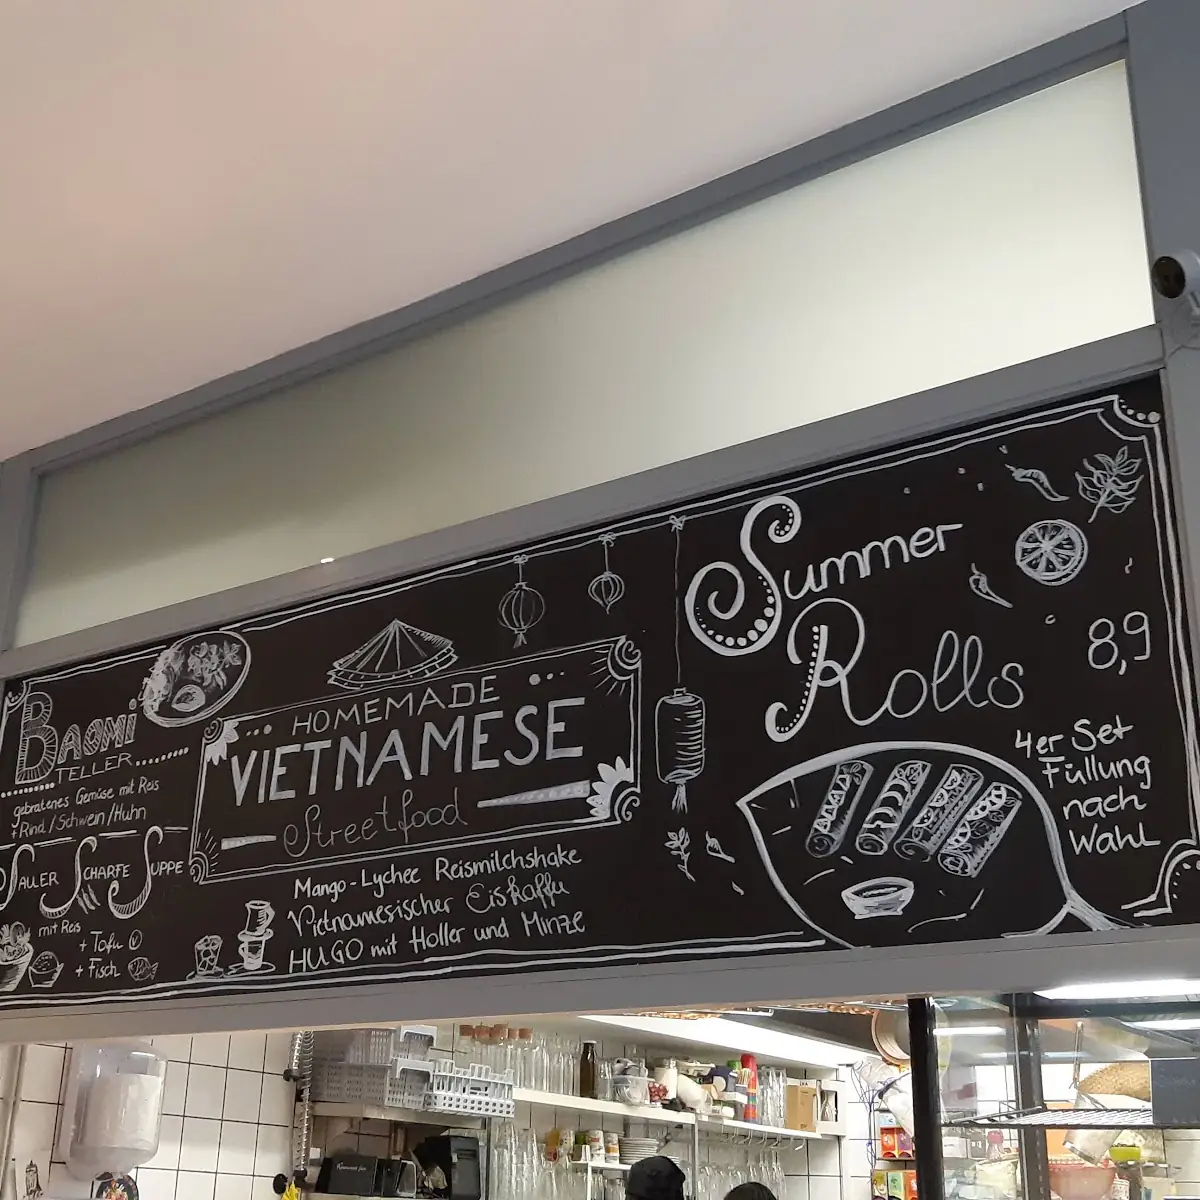 BAOMI
TELLER
gebratenes Gemüse mit Reis
+ Rind / Schwein / Huhn
SAUER SCHARFE SUPPE
mit Reis
+ Tofu V
+ Fisch
HOMEMADE
VIETNAMESE
Streetfood
Mango-Lychee Reismilchshake
Vietnamesischer Eiskaffee
HUGO mit Holler und Minze
Summer
Rolls
8,9
4er Set
Füllung
nach
Wahl